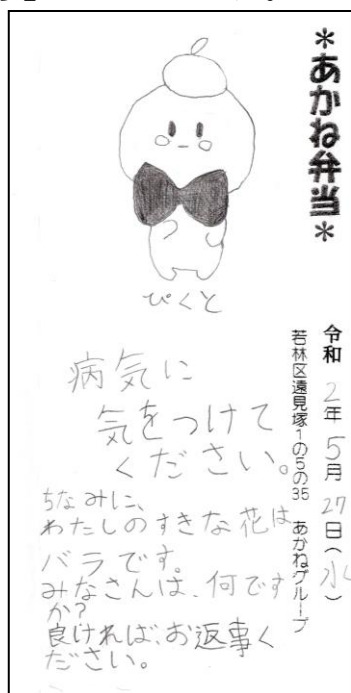 ＊あかね弁当＊
令和2年5月27日（水）
若林区遠見塚1の5の35　あかねグループ
ぴくと
病気に
気をつけて
ください。
ちなみに、
わたしのすきな花は
バラです。
みなさんは、何です
か?
良ければ、お返事く
ださい。